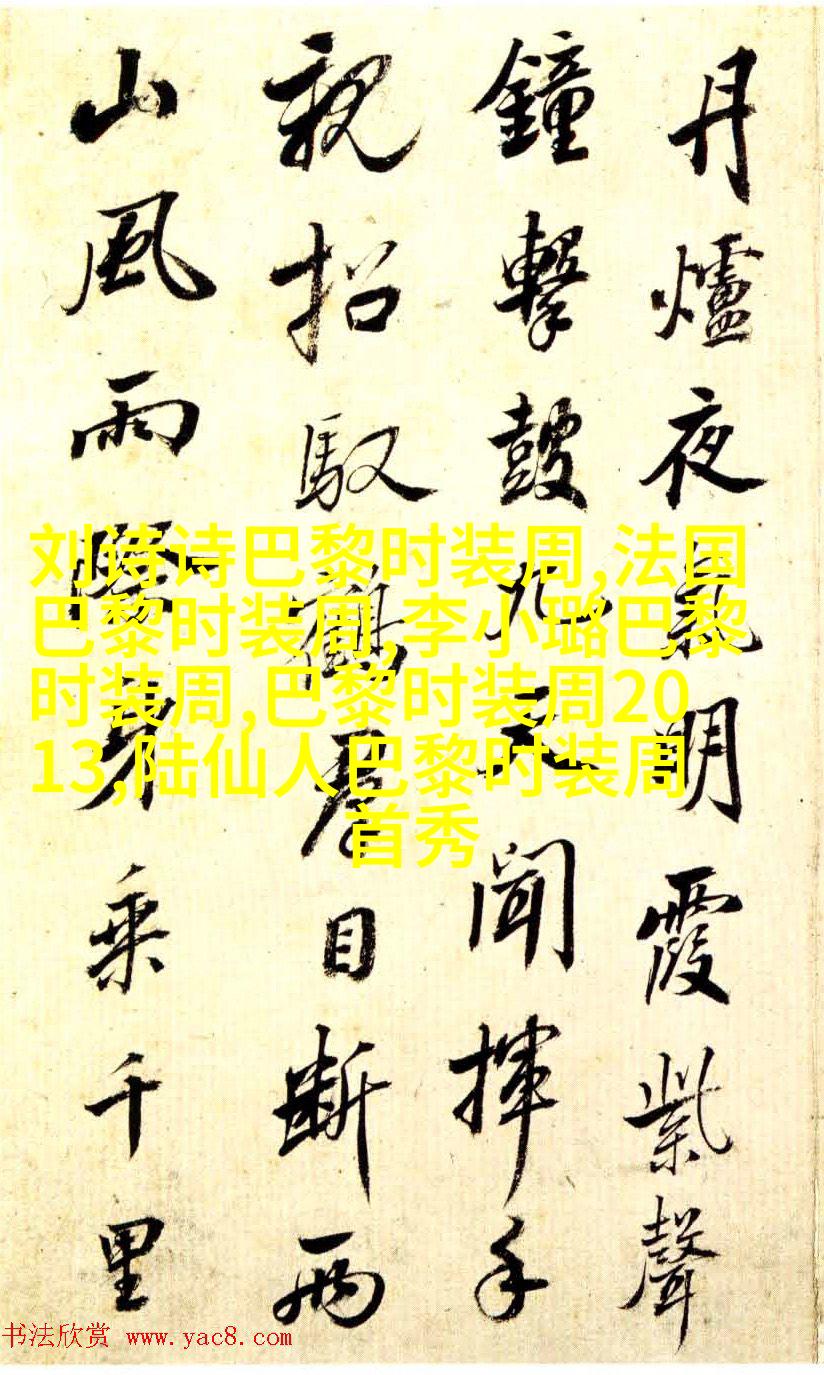 丹爐夜氣明霞紫聲
鐘擊鼓九天聞揮手
親招馭鶴羣目斷兩
山風雨際身乘千里
刘诗诗巴黎时装周,法国
巴黎时装周,李小璐巴黎
时装周,巴黎时装周20
13,陆仙人巴黎时装周
首秀
书法欣赏 www.yac8.com